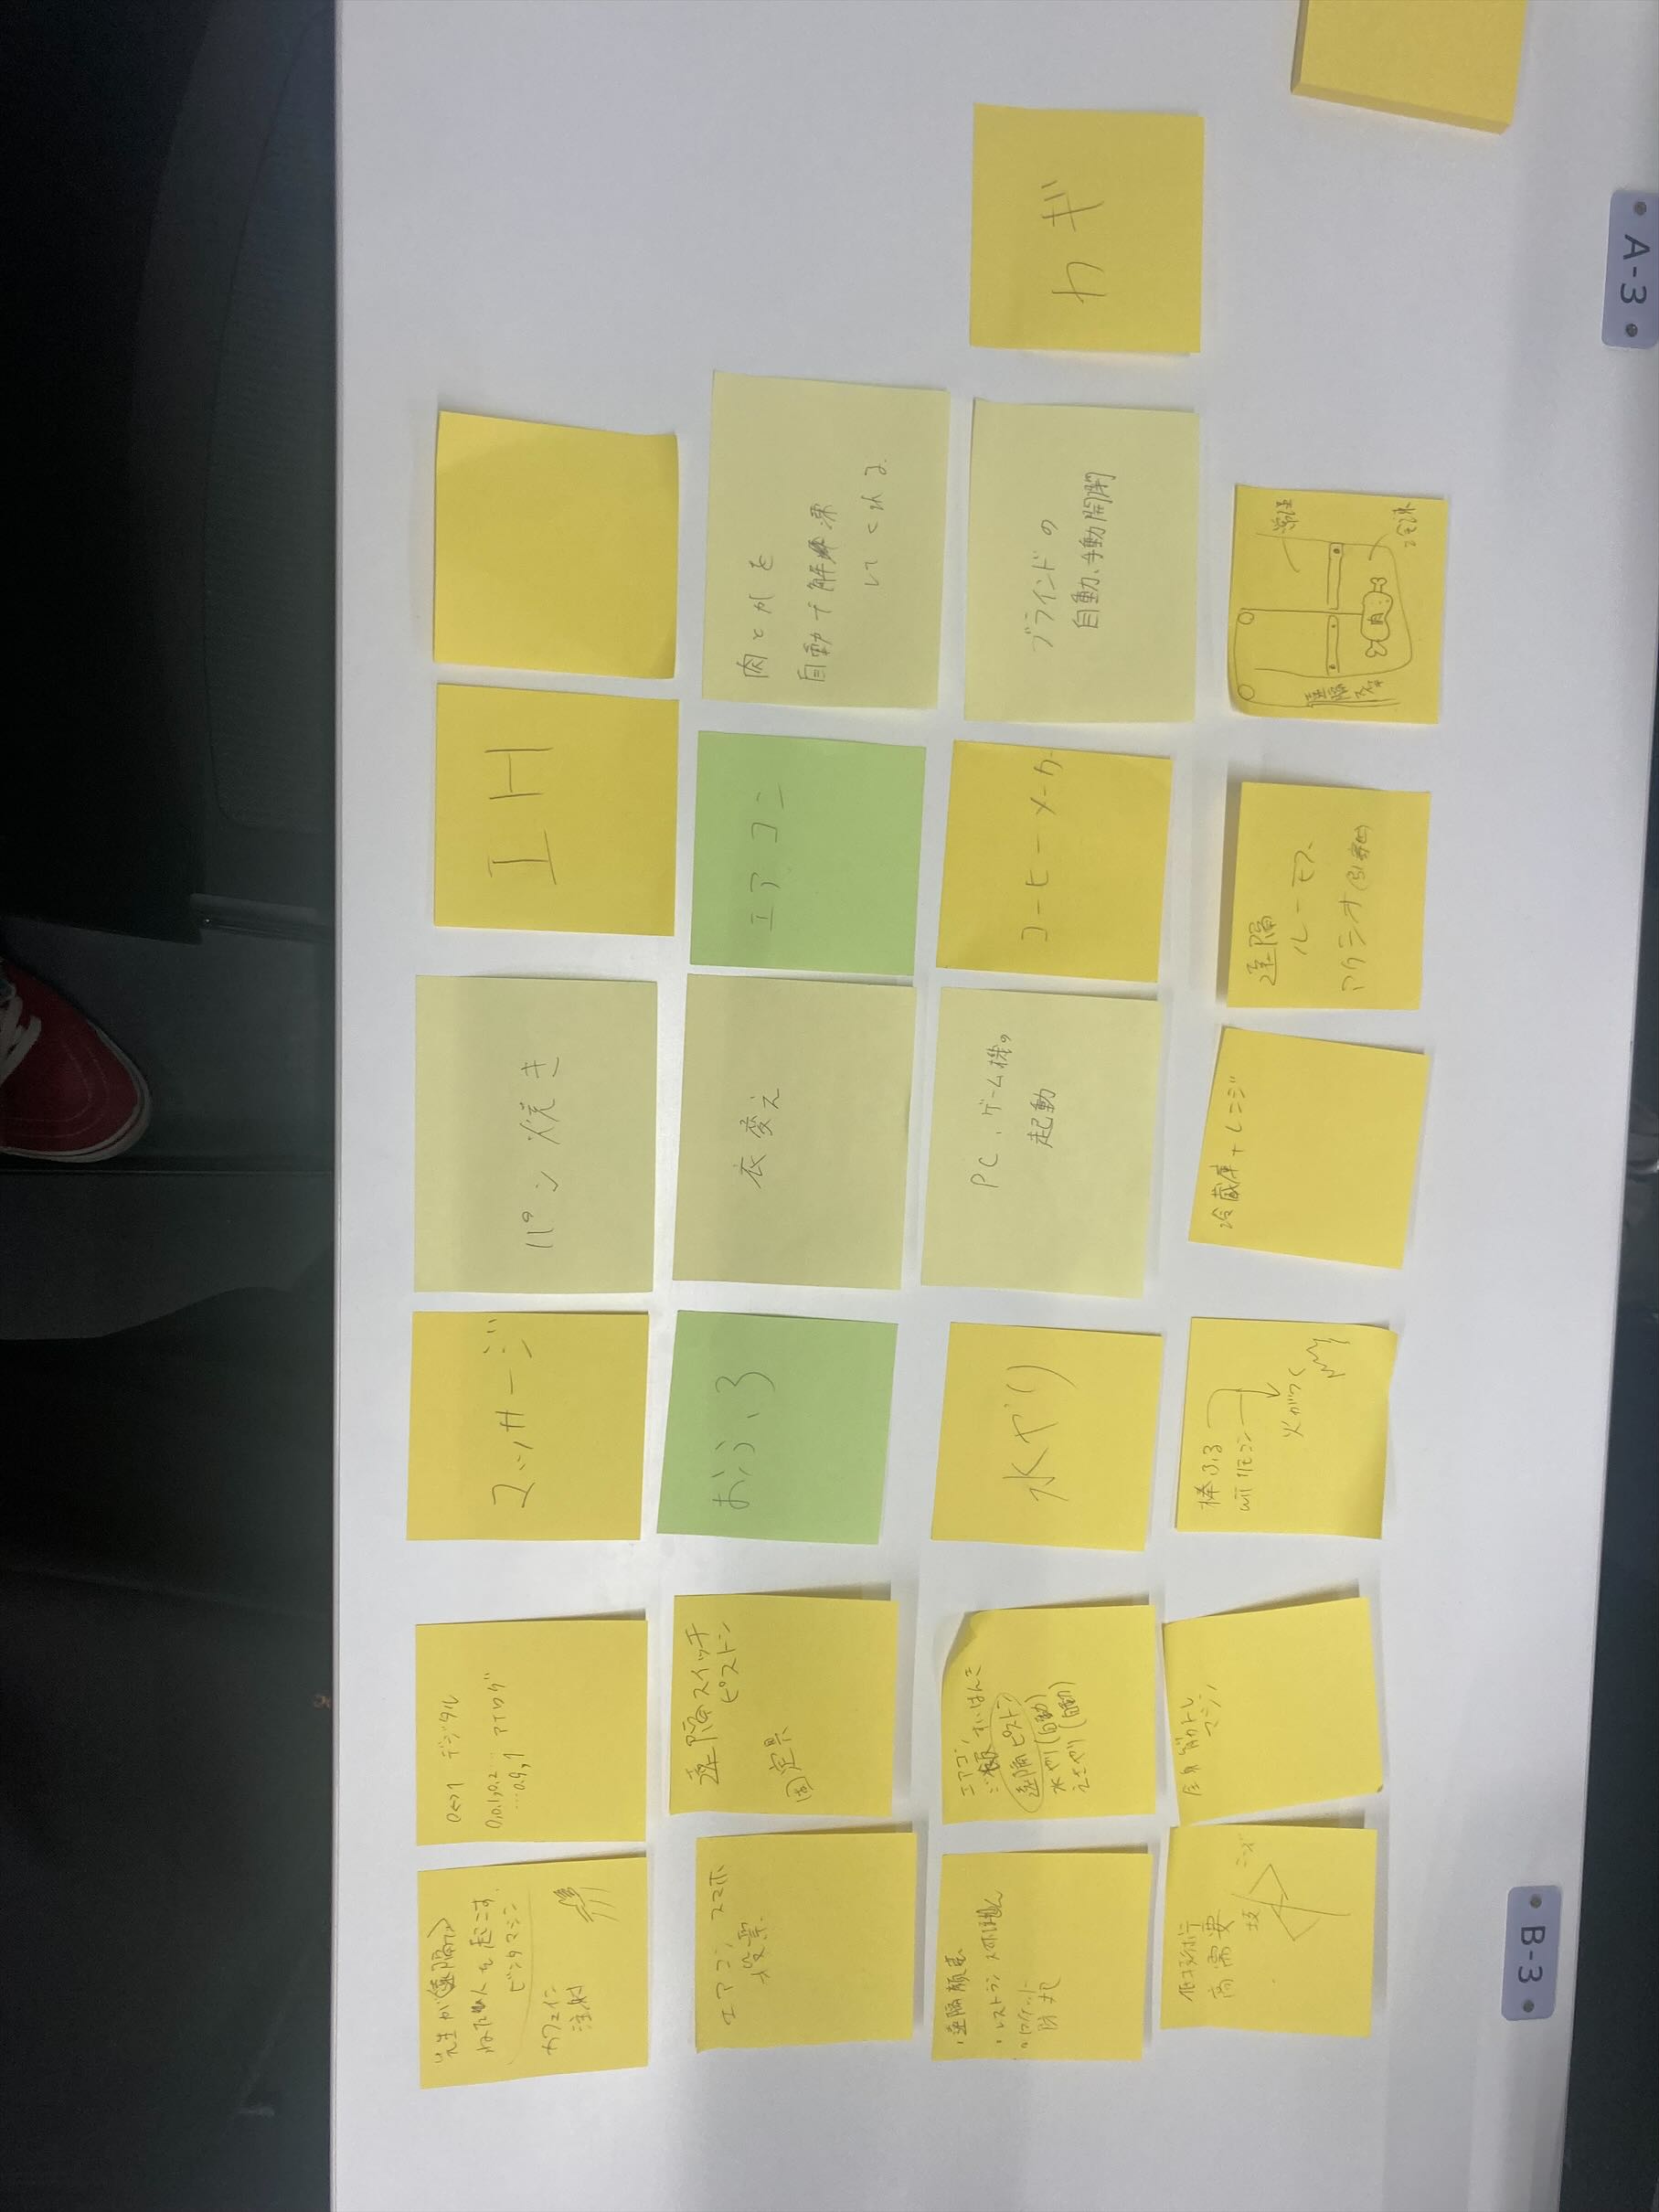 先生が(遠隔で)
ねた人を起こす.
ビンタマシン
カフェイン
注射
0↔1 デジタル
0,0.1,0.2…
…0.9,1 アナログ
マッサージ
パン焼き
IH
エアコン, スマホ
投票
遠隔スイッチ
ピストン
固定具
おふろ
衣変え
エアコン
肉とかを
自動で解凍
してくれる.
・遠隔
・レストラン
エアコン
ご飯 すいはんき
遠隔ピストン
水やり(自動)
えさやり(自動)
水やり
PC、ゲーム機の
起動
コーヒーメーカー
ブラインドの
自動、手動開閉
カギ
高需要
技 ニーズ
全身筋トレ
マシン
棒ふる
wii リモコン
火がつく
冷蔵庫+レンジ
遠隔
ルーモス
アクシオ(引寄せ)
常温
遠隔
肉
冷凍
B-3
A-3